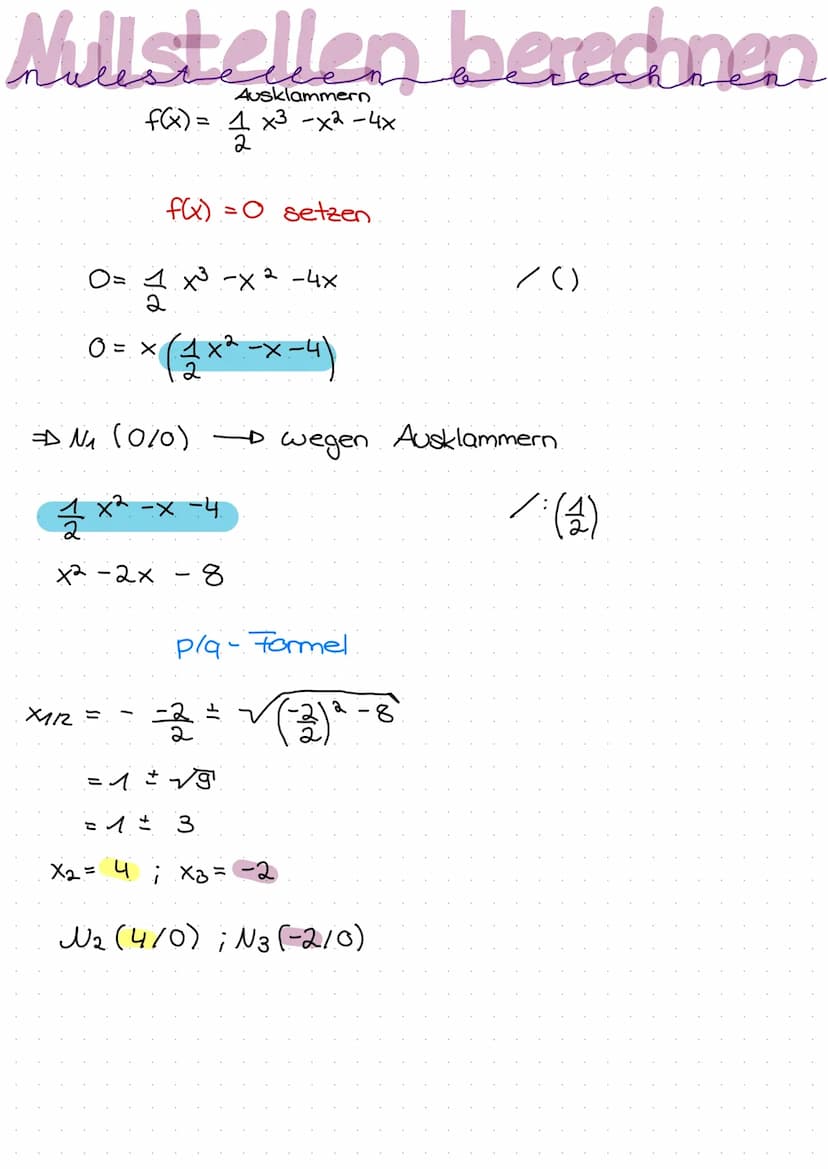 Nullstellen berechnen
nullstellen berechnen
Ausklammern
f(x) = 1/2 x³ - x² - 4x
f(x) = 0 setzen
0 = 1/2 x³ - x² - 4x / ( )
0 = x (1/2 x² - x - 4)
⇒ N₁ (0/0) → wegen Ausklammern
1/2 x² - x - 4 / : (1/2)
x² - 2x - 8
p/q - Formel
x1/2 = - -2/2 ± √((-2/2)² - 8)
= 1 ± √9
= 1 ± 3
x₂ = 4 ; x₃ = -2
N₂ (4/0) ; N₃ (-2/0)